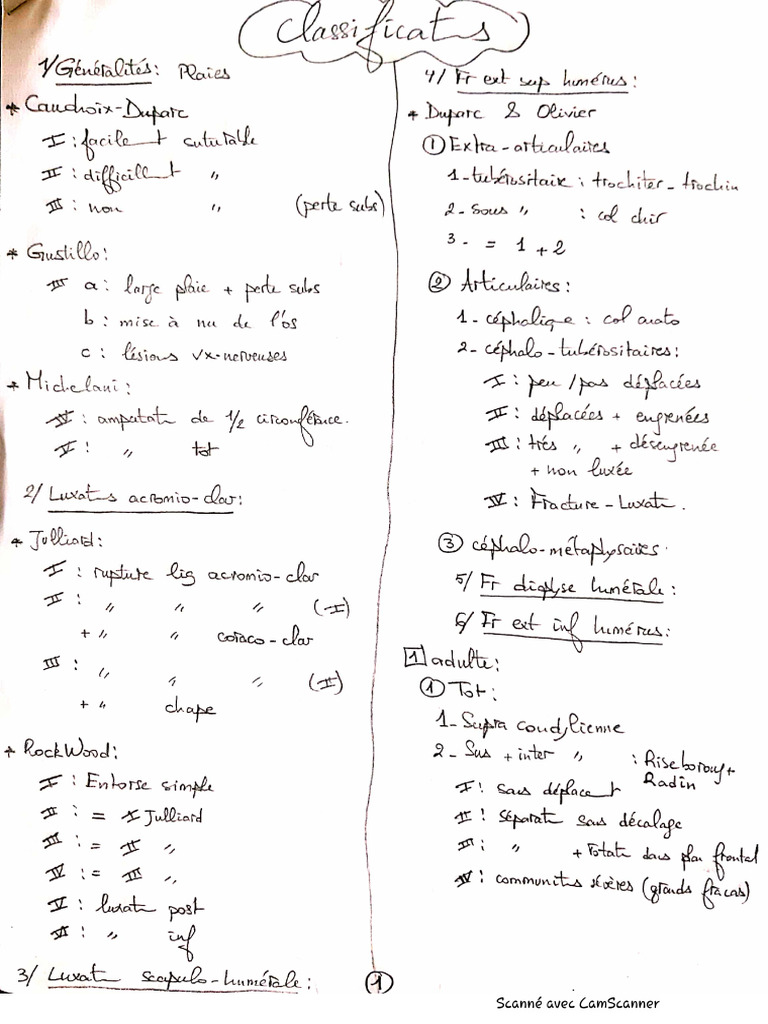 Classificats
1/ Généralités: Plaies
* Cauchoix-Duparc
I : facilet suturable
II : difficilet "
III : non " (perte subs)
* Gustillo:
III a : large plaie + perte subs
b : mise à nu de l'os
c : lésions vx-nerveuses
* Michelani:
IV : amputat de 1/2 circonférence.
V : " tot
2/ Luxats acromio-clav:
* Julliard:
I : rupture lig acromio-clav
II : " " " (I)
+ " " coraco-clav
III : " " " (II)
+ " chape
* RockWood:
I : Entorse simple
II : = I Julliard
III : = II "
IV : = III "
V : luxat post
VI : " inf
3/ Luxat scapulo-humérale:
4/ Fr ext sup humérus:
* Duparc & Olivier
① Extra-articulaires
1-tubérositaire : trochiter-trochin
2- sous " : col chir
3- = 1 + 2
② Articulaires:
1- céphalique : col anato
2- céphalo-tubérositaires:
I : peu/pas déplacées
II : déplacées + engrenées
III : trés " + désengrenée
+ non luxée
IV : Fracture-Luxat.
③ céphalo-métaphysaires.
5/ Fr diaphyse humérale:
6/ Fr ext inf humérus:
1 adulte:
① Tot:
1- Supra condylienne
2- Sus + inter " : Riseborouy+
Radin
I : sans déplacet
II : séparat sans décalage
III : " + rotat dans plan frontal
IV : communits sévères (grands fracas)
1
Scanné avec CamScanner